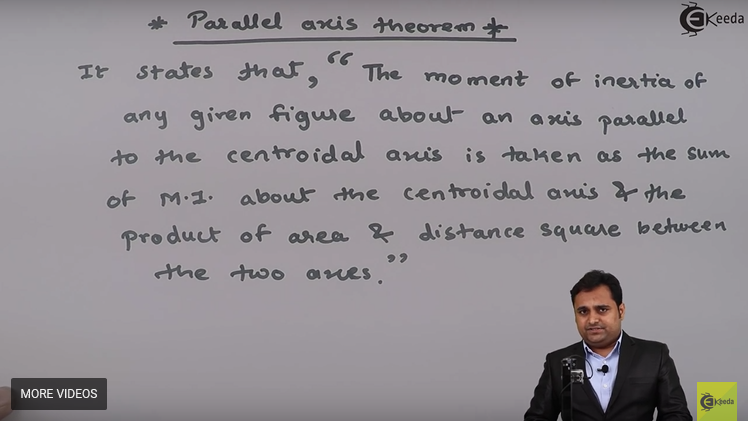 * Parallel axis theorem *
It states that, “ The moment of inertia of
any given figure about an axis parallel
to the centroidal axis is taken as the sum
of M.I. about the centroidal axis & the
product of area & distance square between
the two axes.”
EKeeda
MORE VIDEOS
EKeeda